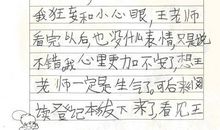 我狂妄和小心眼，王老师
看完以后也没什么表情，只是说
不错我心里更加不安了，想王
老师一定是生气了。可后来阅
读登记本放下来了看见王